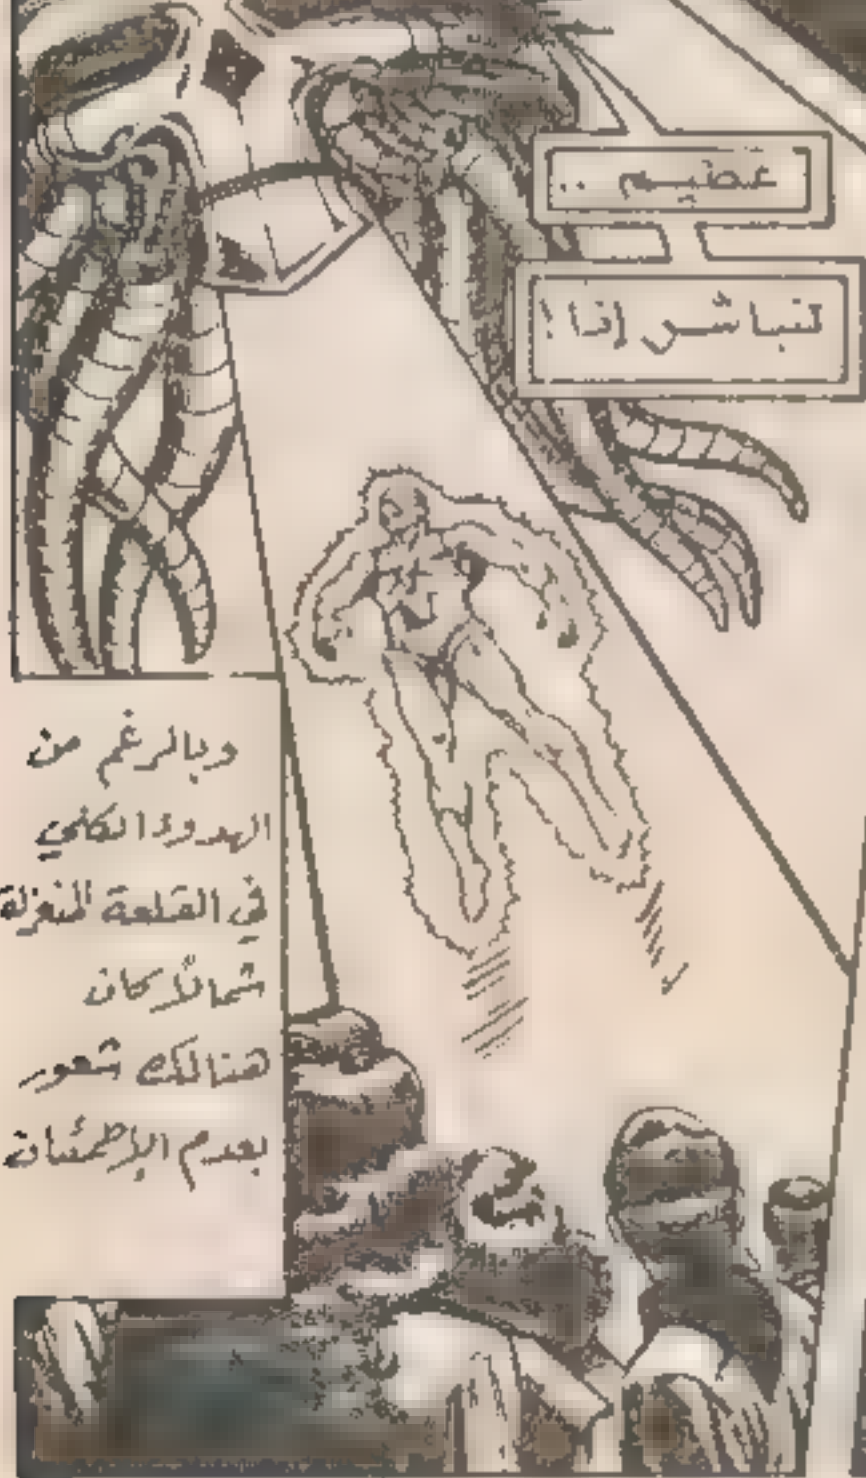 عظيم ..
لنباشر إذا !
وبالرغم من
الهدوء الكلي
في القلعة المنعزلة
شمالاً كان
هنالك شعور
بعدم الإطمئنان